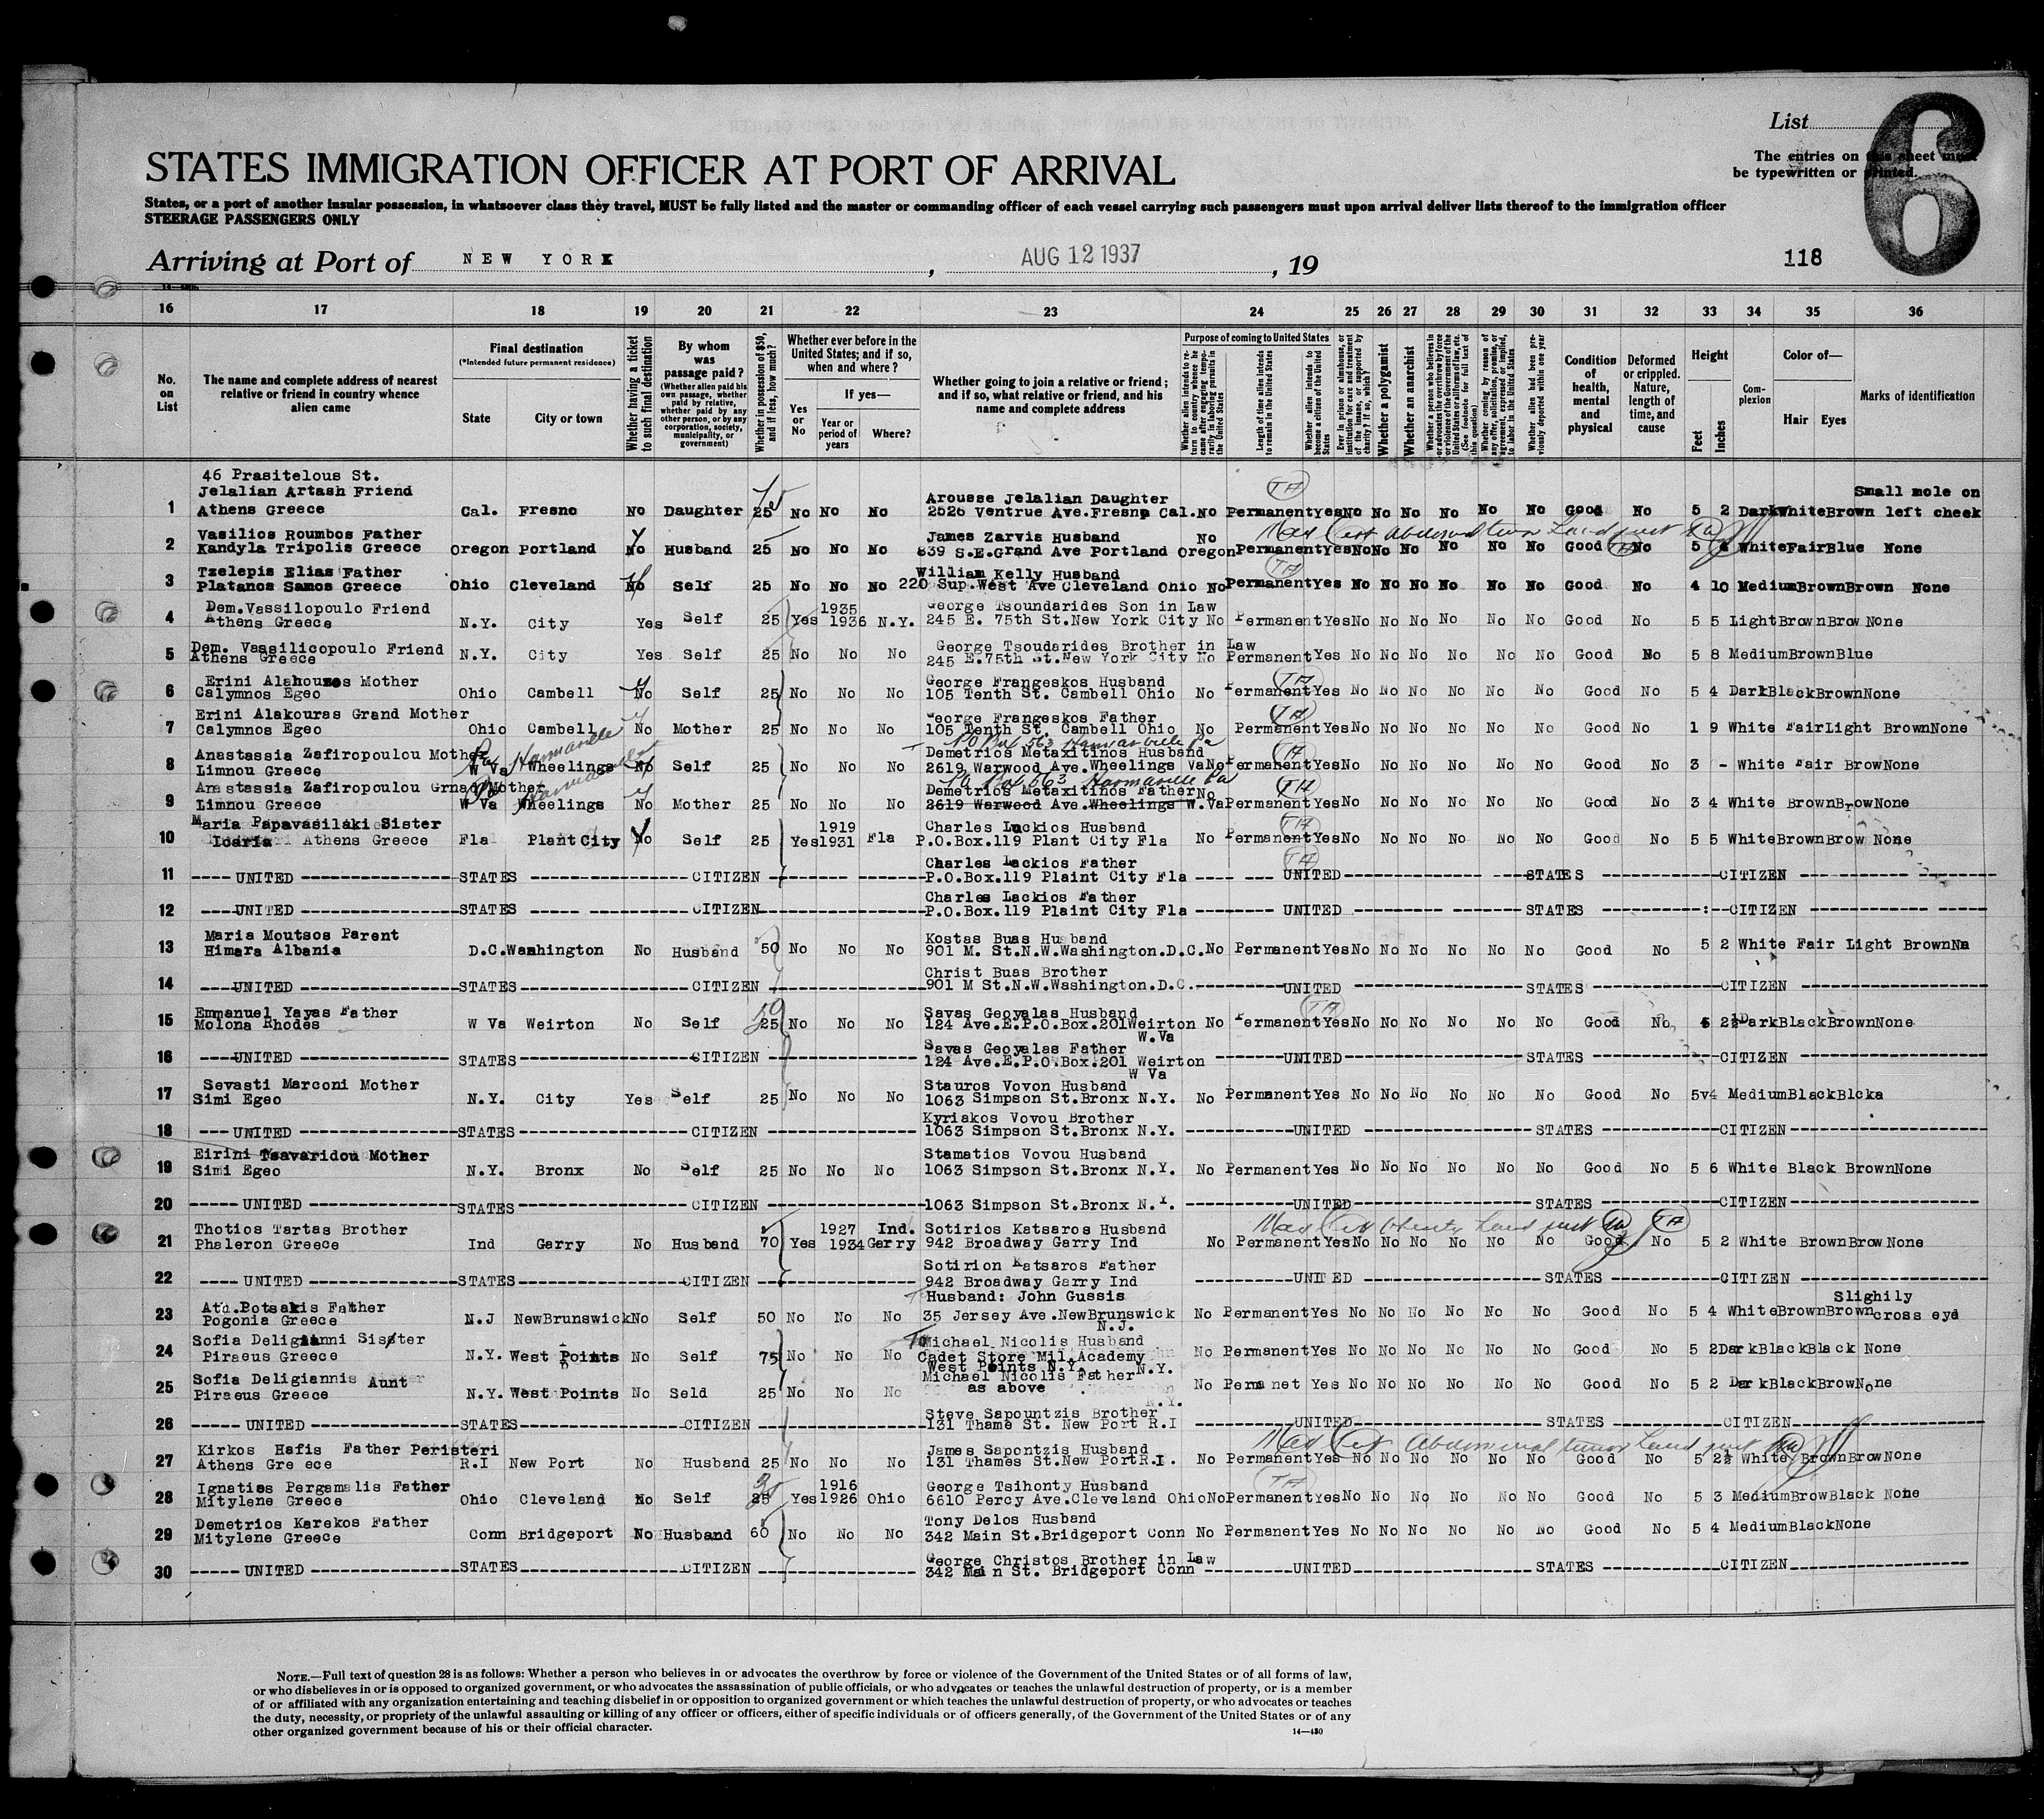 List
6
The entries on this sheet must
be typewritten or printed.
STATES IMMIGRATION OFFICER AT PORT OF ARRIVAL
States, or a port of another insular possession, in whatsoever class they travel, MUST be fully listed and the master or commanding officer of each vessel carrying such passengers must upon arrival deliver lists thereof to the immigration officer
STEERAGE PASSENGERS ONLY
Arriving at Port of NEW YORK, AUG 12 1937, 19
118
16 17 18 19 20 21 22 23 24 25 26 27 28 29 30 31 32 33 34 35 36
No. on List
The name and complete address of nearest relative or friend in country whence alien came
Final destination
(*Intended future permanent residence)
State
City or town
Whether having a ticket to such final destination
By whom was passage paid?
(Whether alien paid his own passage, whether paid by relative, whether paid by any other person, or by any corporation, society, municipality, or government)
Whether in possession of $50, and if less, how much?
Whether ever before in the United States; and if so, when and where?
Yes or No
If yes—
Year or period of years
Where?
Whether going to join a relative or friend; and if so, what relative or friend, and his name and complete address
Purpose of coming to United States
Whether alien intends to return to country whence he came after engaging temporarily in laboring pursuits in the United States
Length of time alien intends to remain in the United States
Whether alien intends to become a citizen of the United States
Ever in prison or almshouse, or institution for care and treatment of the insane, or supported by charity? If so, which?
Whether a polygamist
Whether an anarchist
Whether a person who believes in or advocates the overthrow by force or violence of the Government of the United States or all forms of law, etc. (See footnote for full text of this question)
Whether coming by reason of any offer, solicitation, promise, or agreement, expressed or implied, to labor in the United States
Whether alien had been previously deported within one year
Condition of health, mental and physical
Deformed or crippled. Nature, length of time, and cause
Height
Feet
Inches
Complexion
Color of—
Hair Eyes
Marks of identification
46 Prasitelous St.
Jelalian Artash Friend Arousse Jelalian Daughter TA Small mole on
1 Athens Greece Cal. Fresno No Daughter 25 No No No 2526 Ventrue Ave.Fresno Cal. No Permanent Yes No No No No No No Good No 5 2 Dark White Brown left cheek
Vasilios Roumbos Father James Zarvis Husband
2 Kandyla Tripolis Greece Oregon Portland No Husband 25 No No No 839 S.E.Grand Ave Portland Oregon No Permanent Yes No No No No No No Good No 5 4 White Fair Blue None
Tzelepis Elias Father William Kelly Husband TA
3 Platanos Samos Greece Ohio Cleveland No Self 25 No No No 220 Sup.West Ave Cleveland Ohio No Permanent Yes No No No No No No Good No 4 10 Medium Brown Brown None
Dem.Vassilopoulo Friend 1935 George Tsoundarides Son in Law
4 Athens Greece N.Y. City Yes Self 25 Yes 1936 N.Y. 245 E. 75th St.New York City No Permanent Yes No No No No No No Good No 5 5 Light Brown Brow None
Dem. Vassilicopoulo Friend George Tsoudarides Brother in Law
5 Athens Greece N.Y. City Yes Self 25 No No No 245 E.75th St.New York City No Permanent Yes No No No No No No Good No 5 8 Medium Brown Blue
Erini Alahouzos Mother George Frangeskos Husband TA
6 Calymnos Egeo Ohio Cambell No Self 25 No No No 105 Tenth St. Cambell Ohio No Permanent Yes No No No No No No Good No 5 4 Dark Black Brown None
Erini Alakouras Grand Mother George Frangeskos Father TA
7 Calymnos Egeo Ohio Cambell No Mother 25 No No No 105 Tenth St. Cambell Ohio No Permanent Yes No No No No No No Good No 1 9 White Fair Light Brown None
PO Box 563 Harmarville Pa
Anastassia Zafiropoulou Mother Pa Harmarville Demetrios Metaxitinos Husband TA
8 Limnou Greece W Va Wheelings No Self 25 No No No 2619 Warwood Ave. Wheelings Va No Permanent Yes No No No No No No Good No 3 - White Fair Brow None
PO Box 563 Harmarville Pa
Anastassia Zafiropoulou Grnad Mother Pa Harmarville Demetrios Metaxitinos Father TA
9 Limnou Greece W Va Wheelings No Mother 25 No No No 2619 Warwood Ave. Wheelings W.Va No Permanent Yes No No No No No No Good No 3 4 White Brown Brow None
Maria Papavasilaki Sister 1919 Charles Lackios Husband TA
10 Icaria Athens Greece Fla Plant City No Self 25 Yes 1931 Fla P.O.Box.119 Plant City Fla No Permanent Yes No No No No No No Good No 5 5 White Brown Brow None
Charles Lackios Father TA
11 UNITED STATES CITIZEN P.O.Box.119 Plaint City Fla UNITED STATES CITIZEN
Charles Lackios Father
12 UNITED STATES CITIZEN P.O.Box.119 Plaint City Fla UNITED STATES CITIZEN
Maria Moutsos Parent Kostas Buas Husband
13 Himara Albania D.C. Washington No Husband 50 No No No 901 M. St.N.W.Washington.D.C. No Permanent Yes No No No No No No Good No 5 2 White Fair Light Brown Na
Christ Buas Brother
14 UNITED STATES CITIZEN 901 M St.N.W.Washington.D.C. UNITED STATES CITIZEN
Emmanuel Yayas Father 50 Savas Geoyalas Husband TA
15 Molona Rhodes W Va Weirton No Self 25 No No No 124 Ave.E.P.O.Box.201 Weirton W.Va No Permanent Yes No No No No No No Good No 5 2½ Dark Black Brown None
Savas Geoyalas Father
16 UNITED STATES CITIZEN 124 Ave.E.P.O.Box.201 Weirton W Va UNITED STATES CITIZEN
Sevasti Marconi Mother Stauros Vovon Husband
17 Simi Egeo N.Y. City Yes Self 25 No No No 1063 Simpson St.Bronx N.Y. No Permanent Yes No No No No No No Good No 5v4 Medium Black Blcka
Kyriakos Vovou Brother
18 UNITED STATES CITIZEN 1063 Simpson St.Bronx N.Y. UNITED STATES CITIZEN
Eirini Tsavaridou Mother Stamatios Vovou Husband
19 Simi Egeo N.Y. Bronx No Self 25 No No No 1063 Simpson St.Bronx N.Y. No Permanent Yes No No No No No No Good No 5 6 White Black Brown None
20 UNITED STATES CITIZEN 1063 Simpson St.Bronx N.Y. UNITED STATES CITIZEN
Thotios Tartas Brother 1927 Ind. Sotirios Katsaros Husband TA
21 Phaleron Greece Ind Garry No Husband 70 Yes 1934 Garry 942 Broadway Garry Ind No Permanent Yes No No No No No No Good No 5 2 White Brown Brow None
Sotirion Katsaros Father
22 UNITED STATES CITIZEN 942 Broadway Garry Ind UNITED STATES CITIZEN
Atd.Potsakis Father Husband: John Gussis Slighily
23 Pogonia Greece N.J New Brunswick No Self 50 No No No 35 Jersey Ave.NewBrunswick N.J. No Permanent Yes No No No No No No Good No 5 4 White Brown Brown cross eyd
Sofia Deligianni Sister Michael Nicolis Husband
24 Piraeus Greece N.Y. West Points No Self 75 No No No Cadet Store Mil.Academy No Permanent Yes No No No No No No Good No 5 2 Dark Black Black None
West Points N.Y. N.Y.
Sofia Deligiannis Aunt Michael Nicolis Father
25 Piraeus Greece N.Y. West Points No Seld 25 No No No as above No Perma net Yes No No No No No No Good No 5 2 Dark Black Brow None
Steve Sapountzis Brother
26 UNITED STATES CITIZEN 131 Thame St. New Port R.I UNITED STATES CITIZEN
Kirkos Hafis Father Peristeri James Sapontzis Husband
27 Athens Gre ece R.I New Port No Husband 25 No No No 131 Thames St.New Port R.I. No Permanent Yes No No No No No No Good No 5 2½ White Brown Brow None
Ignaties Pergamalis Father 1916 George Tsihonty Husband TA
28 Mitylene Greece Ohio Cleveland No Self 25 Yes 1926 Ohio 6610 Percy Ave.Cleveland Ohio No Permanent Yes No No No No No No Good No 5 3 Medium Brow Black None
Demetrios Karekos Father Tony Delos Husband
29 Mitylene Greece Conn Bridgeport No Husband 60 No No No 342 Main St.Bridgeport Conn No Permanent Yes No No No No No No Good No 5 4 Medium Black None
George Christos Brother in Law
30 UNITED STATES CITIZEN 342 Main St. Bridgeport Conn UNITED STATES CITIZEN
NOTE.—Full text of question 28 is as follows: Whether a person who believes in or advocates the overthrow by force or violence of the Government of the United States or of all forms of law,
or who disbelieves in or is opposed to organized government, or who advocates the assassination of public officials, or who advocates or teaches the unlawful destruction of property, or is a member
of or affiliated with any organization entertaining and teaching disbelief in or opposition to organized government or which teaches the unlawful destruction of property, or who advocates or teaches
the duty, necessity, or propriety of the unlawful assaulting or killing of any officer or officers, either of specific individuals or of officers generally, of the Government of the United States or of any
other organized government because of his or their official character.
14—430